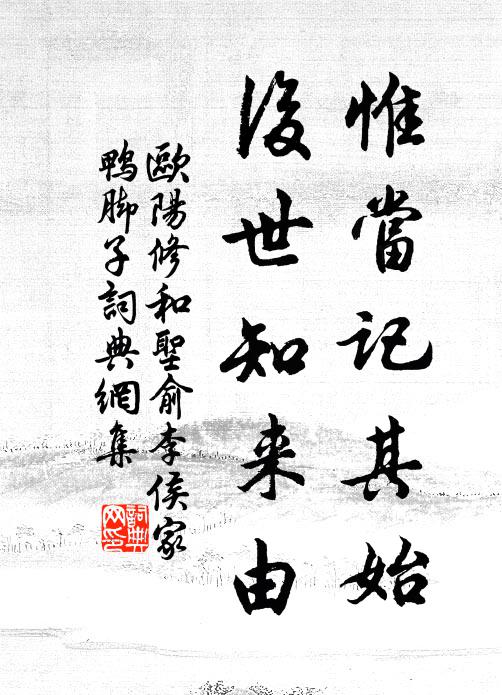 惟當記其始
後世知来由
歐陽修和聖俞李侯家
鴨脚子詞典網集
詞典
网印